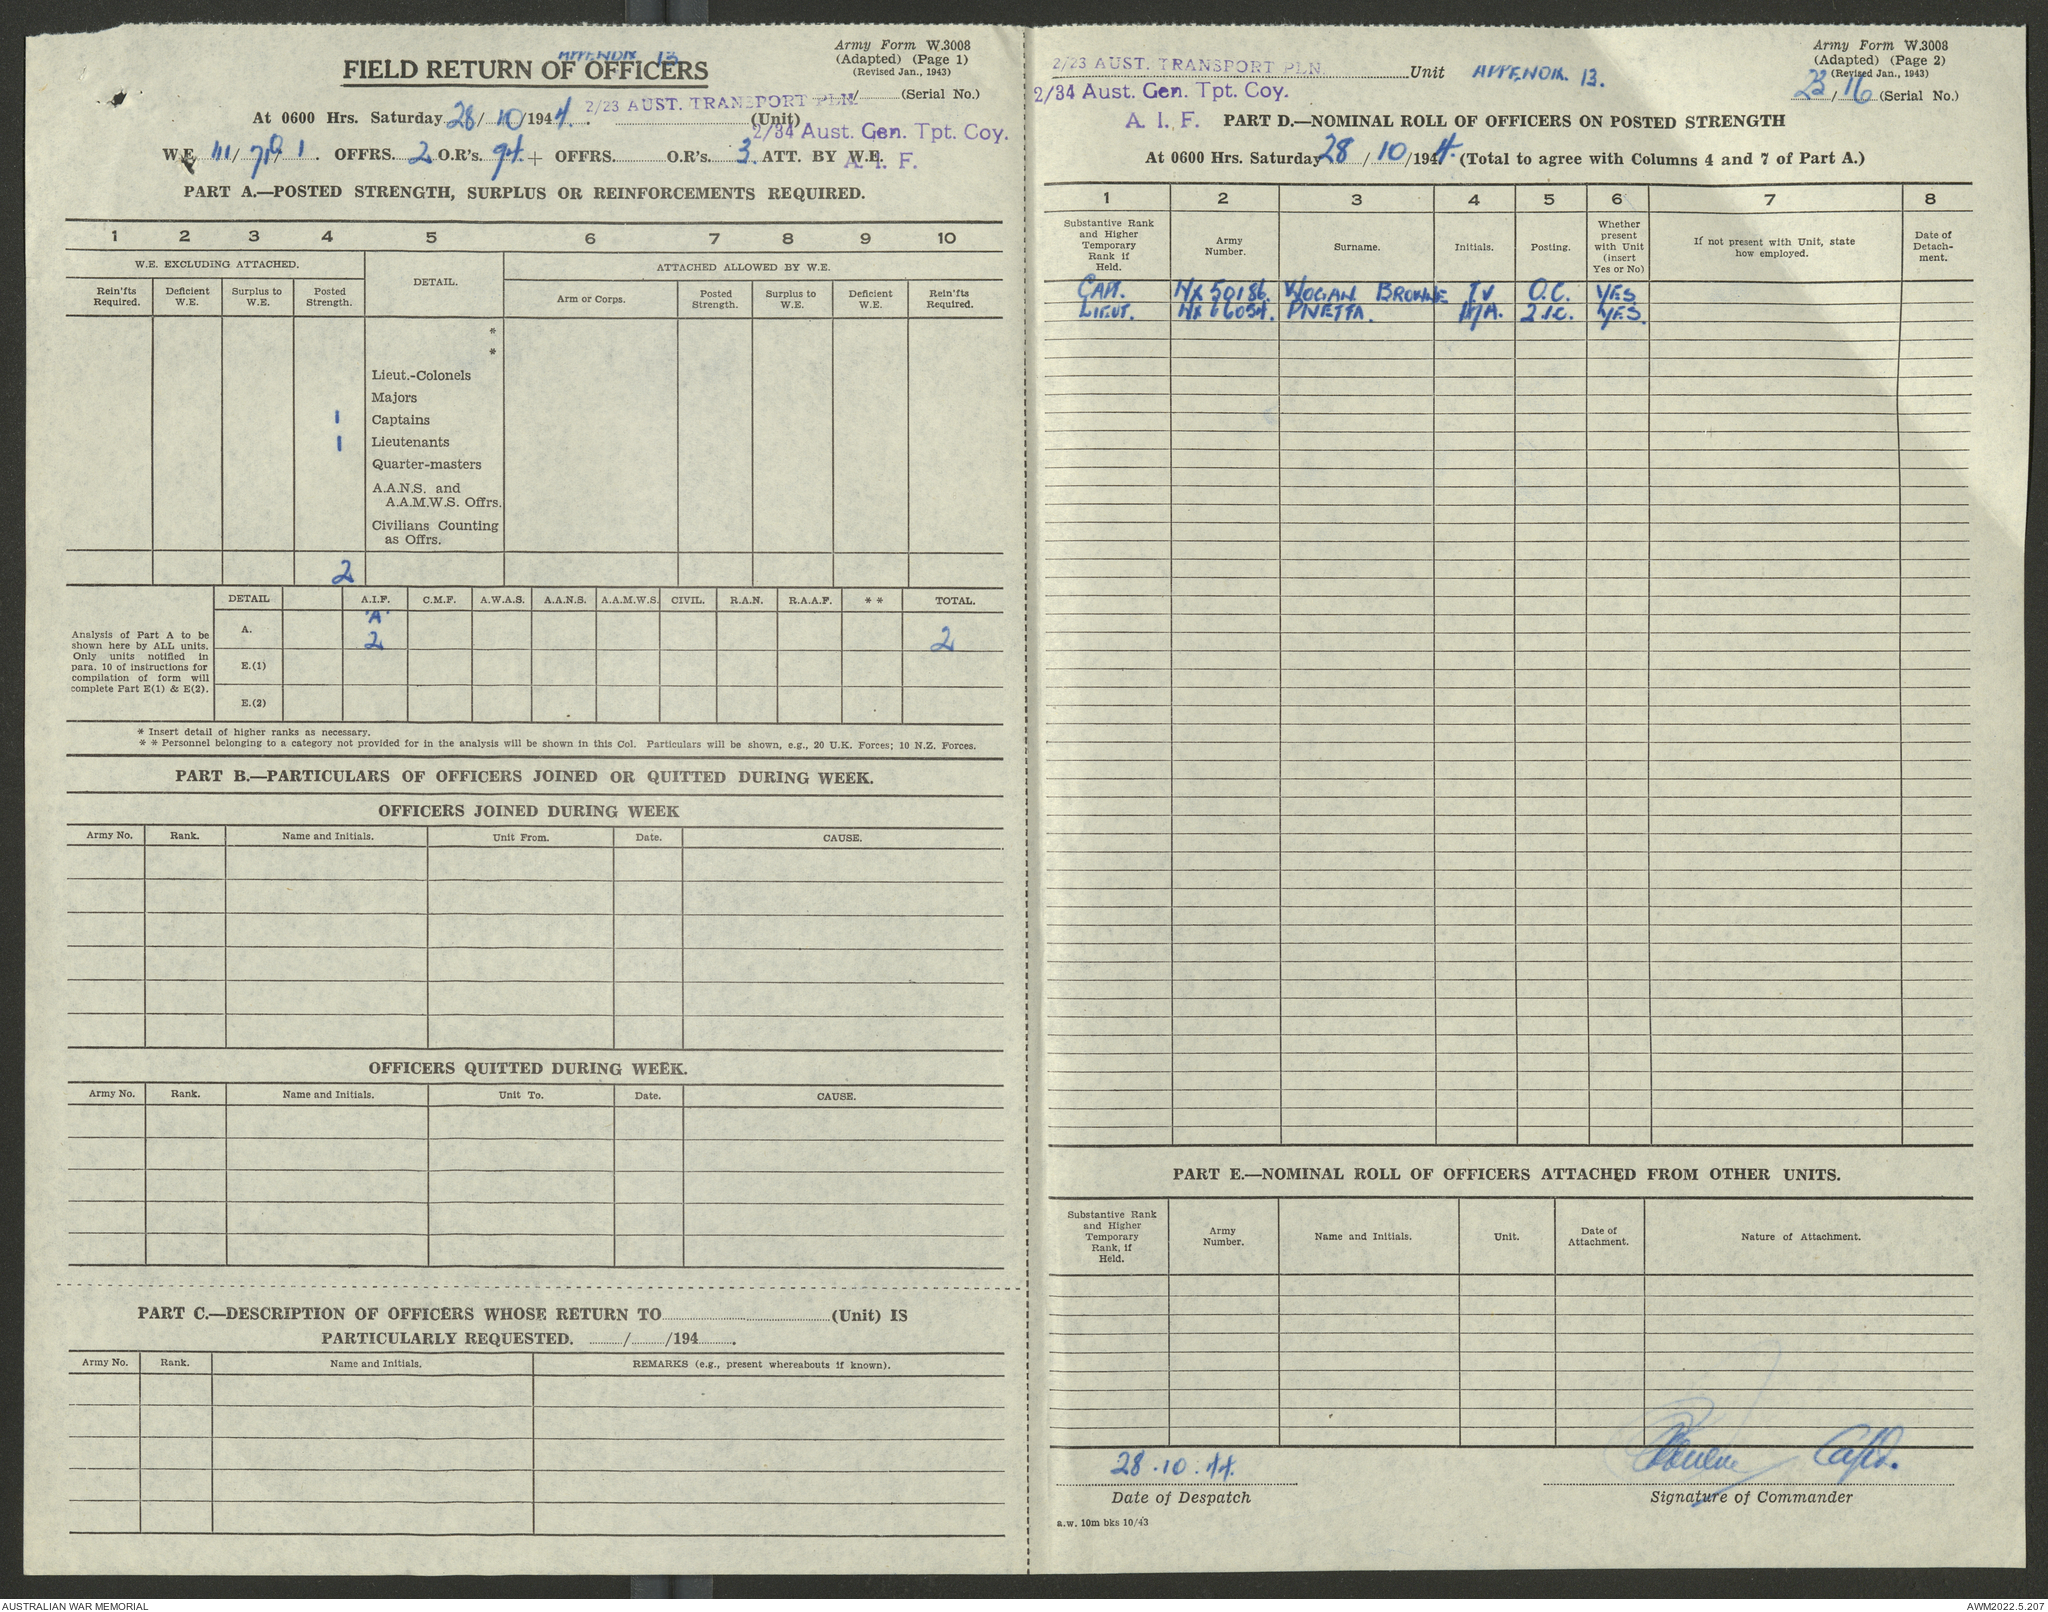 APPENDIX 13
Army Form W.3008
(Adapted) (Page 1)
(Revised Jan., 1943)
FIELD RETURN OF OFFICERS
2/23 AUST. TRANSPORT PLN. / (Serial No.)
At 0600 Hrs. Saturday 28/10/1944. (Unit)
2/34 Aust. Gen. Tpt. Coy.
A. I. F.
W.E. 111/ / 1. OFFRS. 2 O.R's. 94. + OFFRS. O.R's. 3. ATT. BY W.E.
PART A.—POSTED STRENGTH, SURPLUS OR REINFORCEMENTS REQUIRED.
1 2 3 4 5 6 7 8 9 10
W.E. EXCLUDING ATTACHED. DETAIL. ATTACHED ALLOWED BY W.E.
Rein'fts Required. Deficient W.E. Surplus to W.E. Posted Strength. Arm or Corps. Posted Strength. Surplus to W.E. Deficient W.E. Rein'fts Required.
*
*
Lieut.-Colonels
Majors
1 Captains
1 Lieutenants
Quarter-masters
A.A.N.S. and
A.A.M.W.S. Offrs.
Civilians Counting
as Offrs.
2
DETAIL A.I.F. C.M.F. A.W.A.S. A.A.N.S. A.A.M.W.S. CIVIL. R.A.N. R.A.A.F. * * TOTAL.
Analysis of Part A to be
shown here by ALL units.
Only units notified in
para. 10 of instructions for
compilation of form will
complete Part E(1) & E(2).
A. 'A' 2 2
E.(1)
E.(2)
* Insert detail of higher ranks as necessary.
* * Personnel belonging to a category not provided for in the analysis will be shown in this Col. Particulars will be shown, e.g., 20 U.K. Forces; 10 N.Z. Forces.
PART B.—PARTICULARS OF OFFICERS JOINED OR QUITTED DURING WEEK.
OFFICERS JOINED DURING WEEK
Army No. Rank. Name and Initials. Unit From. Date. CAUSE.
OFFICERS QUITTED DURING WEEK.
Army No. Rank. Name and Initials. Unit To. Date. CAUSE.
PART C.—DESCRIPTION OF OFFICERS WHOSE RETURN TO (Unit) IS
PARTICULARLY REQUESTED. / /194 .
Army No. Rank. Name and Initials. REMARKS (e.g., present whereabouts if known).
Army Form W.3008
(Adapted) (Page 2)
(Revised Jan., 1943)
2/23 AUST. TRANSPORT PLN. Unit APPENDIX 13.
23/16 (Serial No.)
2/34 Aust. Gen. Tpt. Coy.
A. I. F. PART D.—NOMINAL ROLL OF OFFICERS ON POSTED STRENGTH
At 0600 Hrs. Saturday 28/10/1944. (Total to agree with Columns 4 and 7 of Part A.)
1 2 3 4 5 6 7 8
Substantive Rank and Higher Temporary Rank if Held. Army Number. Surname. Initials. Posting. Whether present with Unit (insert Yes or No) If not present with Unit, state how employed. Date of Detach-ment.
CAPT. NX50186. WOGAN BROWNE TV O.C. YES
LIEUT. NX66054. PIVETTA. 2.I.C. YES.
PART E.—NOMINAL ROLL OF OFFICERS ATTACHED FROM OTHER UNITS.
Substantive Rank and Higher Temporary Rank, if Held. Army Number. Name and Initials. Unit. Date of Attachment. Nature of Attachment.
28.10.44. Browne Capt.
Date of Despatch Signature of Commander
a.w. 10m bks 10/43
AUSTRALIAN WAR MEMORIAL AWM2022.5.207